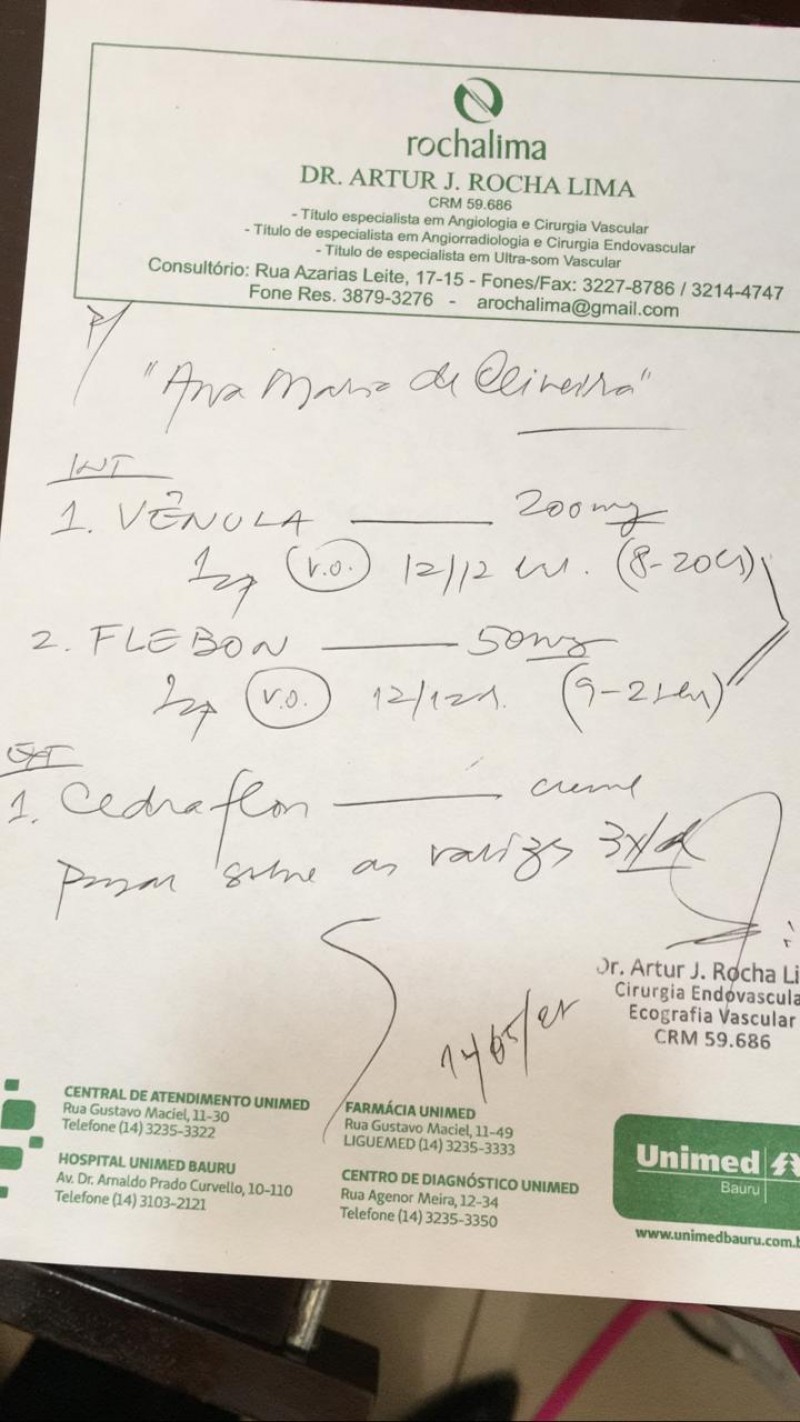 rochalima
DR. ARTUR J. ROCHA LIMA
CRM 59.686
- Título especialista em Angiologia e Cirurgia Vascular
- Título de especialista em Angiorradiologia e Cirurgia Endovascular
- Título de especialista em Ultra-som Vascular
Consultório: Rua Azarias Leite, 17-15 - Fones/Fax: 3227-8786 / 3214-4747
Fone Res. 3879-3276 - arochalima@gmail.com
P/
"Ana Maria de Oliveira"
INT
1. VÊNULA 200mg
(v.o.) 12/12
2. FLEBON 50mg
(v.o.) 12/12
EXT
1. Cedraflon creme
passar sobre as varizes 3x/d
14/05/21
Dr. Artur J. Rocha Li
Cirurgia Endovascula
Ecografia Vascular
CRM 59.686
CENTRAL DE ATENDIMENTO UNIMED
Rua Gustavo Maciel, 11-30
Telefone (14) 3235-3322
HOSPITAL UNIMED BAURU
Av. Dr. Arnaldo Prado Curvello, 10-110
Telefone (14) 3103-2121
FARMÁCIA UNIMED
Rua Gustavo Maciel, 11-49
LIGUEMED (14) 3235-3333
CENTRO DE DIAGNÓSTICO UNIMED
Rua Agenor Meira, 12-34
Telefone (14) 3235-3350
Unimed
Bauru
www.unimedbauru.com.b